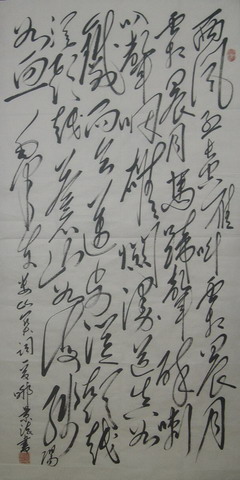 西风烈长空雁叫霜晨月
霜晨月马蹄声碎喇
叭声咽雄关漫道真如
铁而今迈步从头越
从头越苍山如海残阳
如血
娄山关词
书